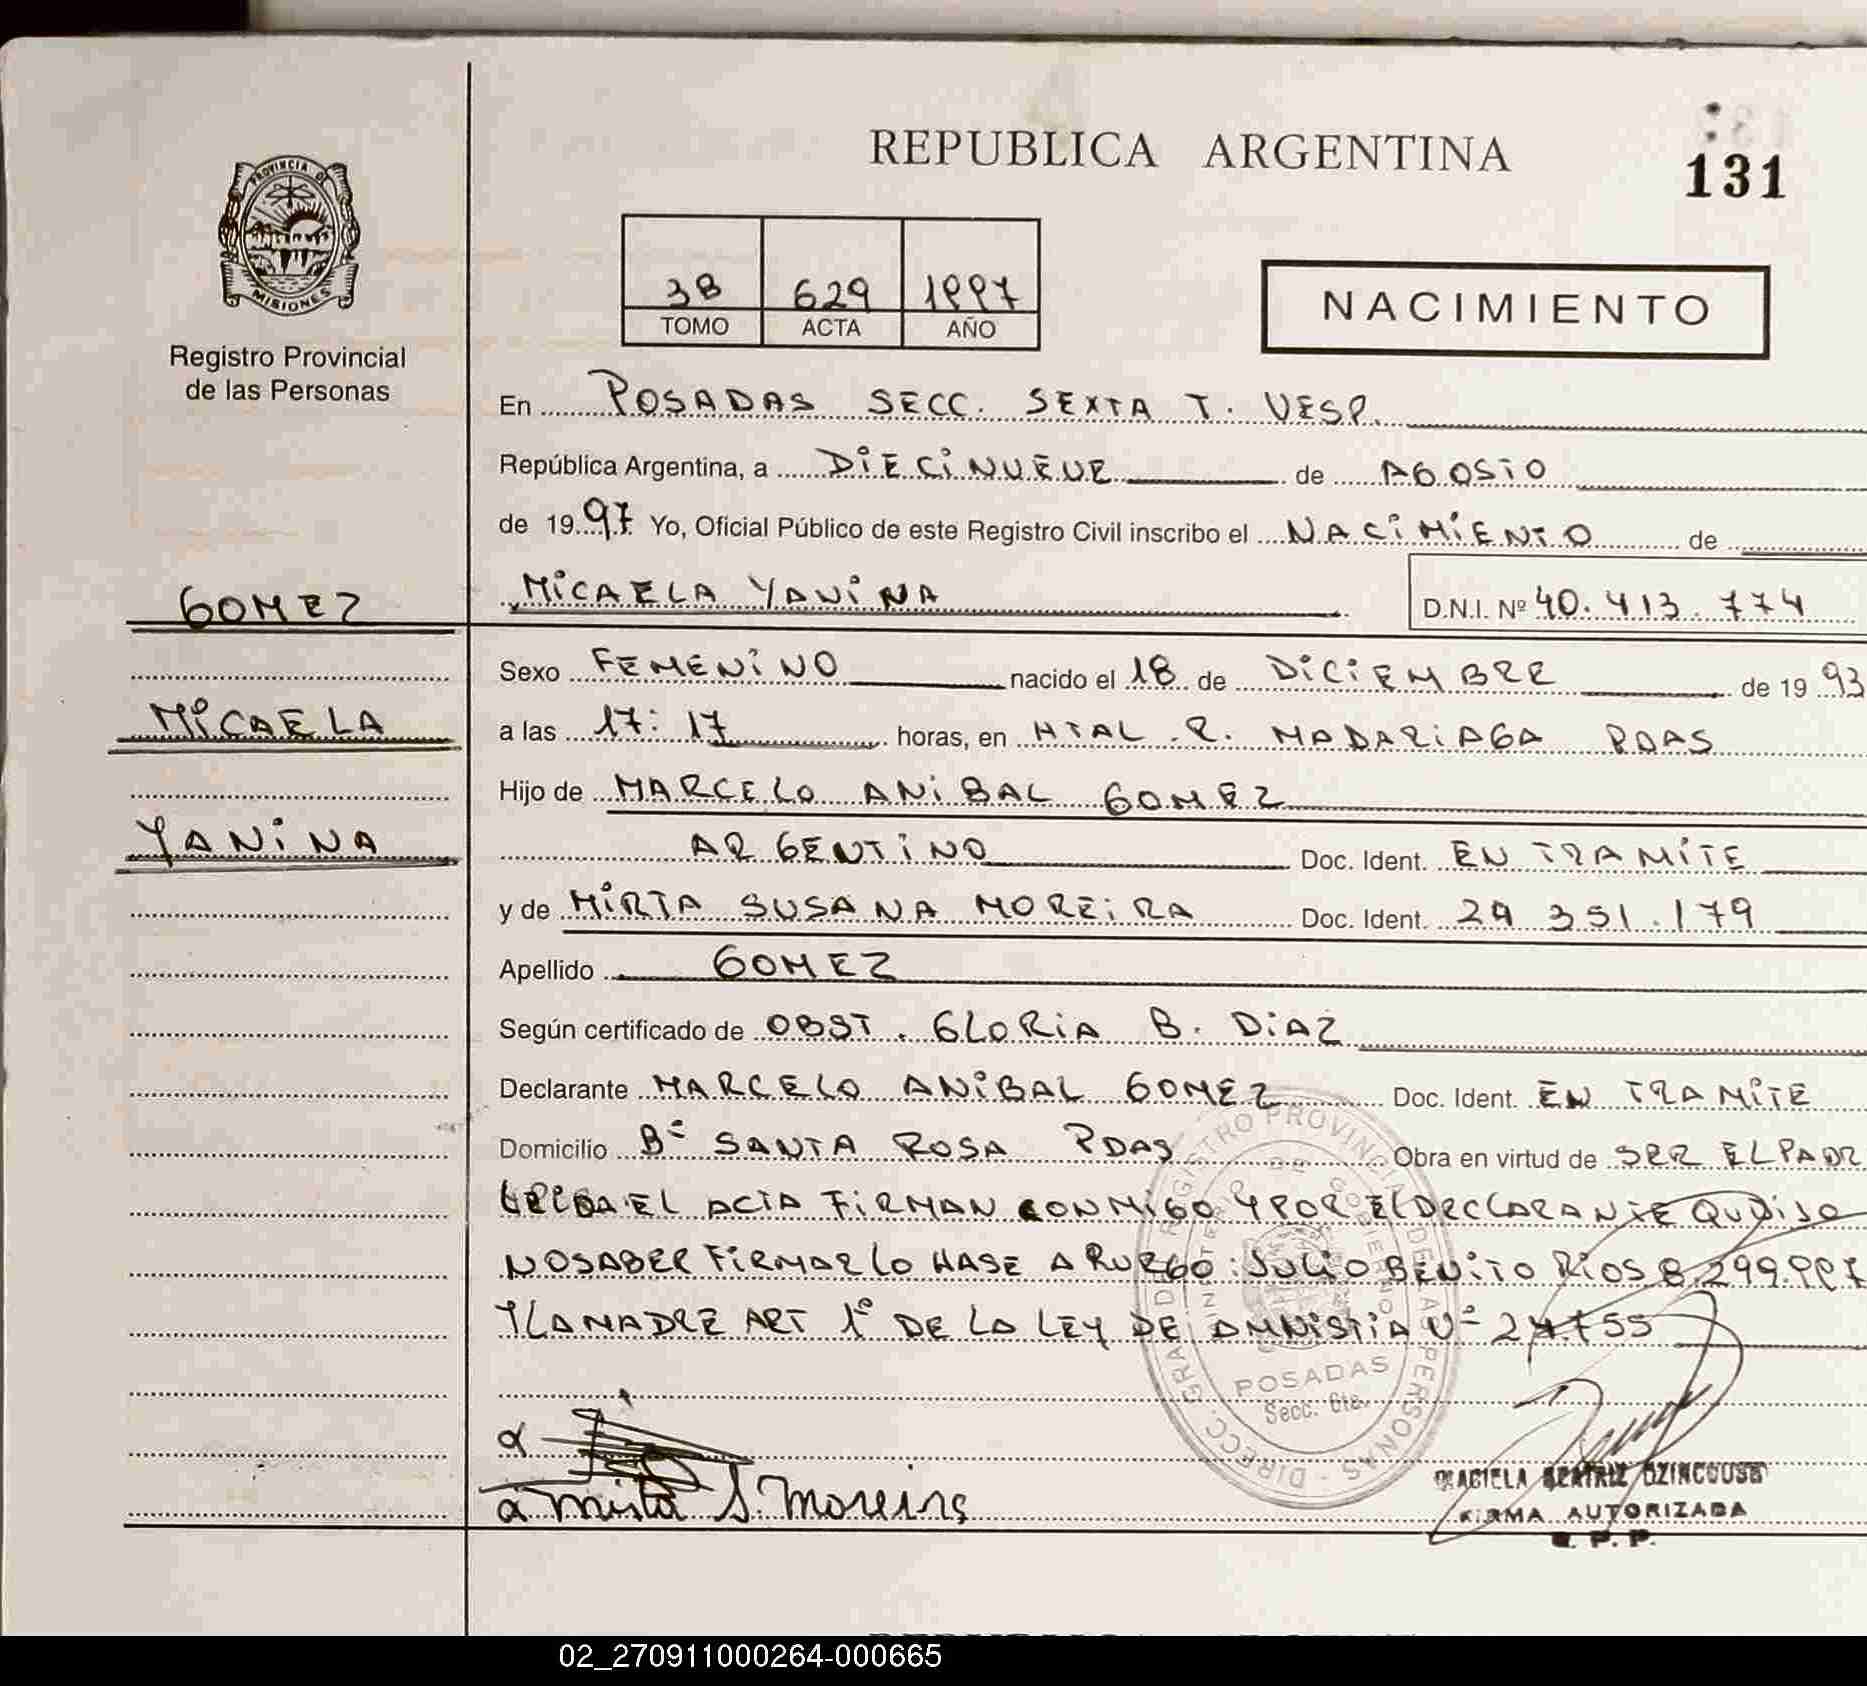 REPUBLICA ARGENTINA
131
PROVINCIA DE
MISIONES
Registro Provincial
de las Personas
3B 629 1997
TOMO ACTA AÑO
NACIMIENTO
En POSADAS SECC. SEXTA T. VESP.
República Argentina, a DIECINUEVE de AGOSTO
de 1997 Yo, Oficial Público de este Registro Civil inscribo el NACIMIENTO de
MICAELA YANINA D.N.I. Nº 40.413.774
GOMEZ
MICAELA
YANINA
Sexo FEMENINO nacido el 18 de DICIEMBRE de 1993
a las 17:17 horas, en HTAL R. MADARIAGA PDAS
Hijo de MARCELO ANIBAL GOMEZ
ARGENTINO Doc. Ident. EN TRAMITE
y de MIRTA SUSANA MOREIRA Doc. Ident. 29 351.179
Apellido GOMEZ
Según certificado de OBST. GLORIA B. DIAZ
Declarante MARCELO ANIBAL GOMEZ Doc. Ident. EN TRAMITE
Domicilio Bº SANTA ROSA PDAS Obra en virtud de SER EL PADR
LEIDA EL ACTA FIRMAN CONMIGO Y POR EL DECLARANTE QUDIJO
NO SABER FIRMAR LO HASE A RUEGO: JULIO BENITO RIOS 8.299.997
Y LA MADRE ART 1º DE LA LEY DE AMNISTIA Nº 24.755
POSADAS
Secc. 6ta.
Mirta S. Moreira
GRACIELA BEATRIZ
FIRMA AUTORIZADA
R. P. P.
02_270911000264-000665